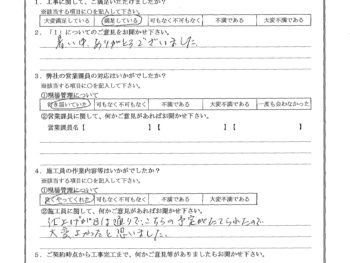 1．工事に関して、ご満足いただけましたか？
※該当する項目に○を記入して下さい。
大変満足している 満足している 可もなく不可もなく 不満である 大変不満である
2．「1」についてのご意見をお聞かせ下さい。
暑い中、ありがとうございました
3．弊社の営業課員の対応はいかがでしたか？
※該当する項目に○を記入して下さい。
①現場管理について
行き届いていた 可もなく不可もなく 不満である 大変不満である 一度も会わなかった
②営業課員に関して、何かご意見があればお聞かせ下さい。
営業課員名【 】【 】【 】
4．施工員の作業内容等はいかがでしたか？
※該当する項目に○を記入して下さい。
①現場管理について
良くやってくれた 可もなく不可もなく 不満である 大変不満である
②施工員に関して、何かご意見があればお聞かせ下さい。
仕上げが日は通りで、こちらの予定がたてられたので
大変よかったと思いました。
5．ご契約時点から工事完工まで、何かご意見等がありましたらお聞かせ下さい。